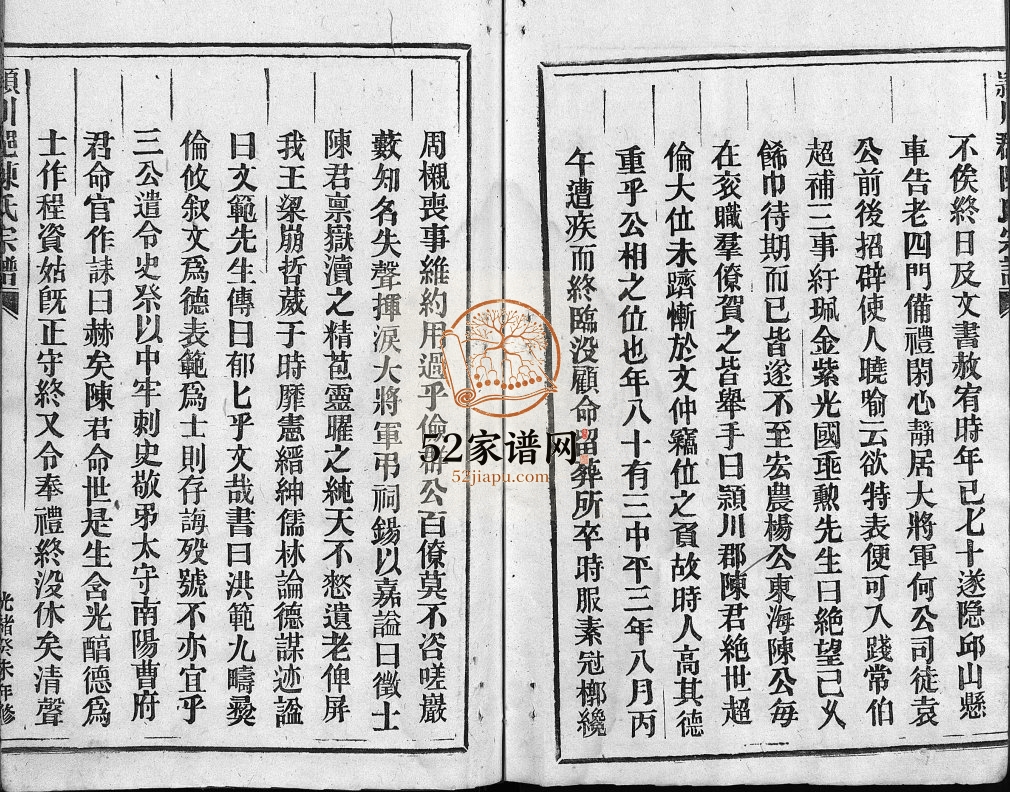 不俟終日及文書赦宥時年已七十遂隱邱山懸
車告老四門備禮閑心靜居大將軍何公司徒袁
公前後招辟使人曉喻云欲特表便可入踐常伯
超補三事紆珮金紫光國垂勲先生曰絶望已久
餙巾待期而已皆遂不至宏農楊公東海陳公每
在袞職羣僚賀之皆舉手曰潁川郡陳君絶世超
倫大位未躋慚於文仲竊位之負故時人高其德
重乎公相之位也年八十有三中平三年八月丙
午遭疾而終臨没顧命留葬所卒時服素冠槨纔
周櫬喪事維約用過乎儉群公百僚莫不咨嗟巖
藪知名失聲揮淚大將軍弔祠錫以嘉謚曰徵士
陳君禀嶽瀆之精苞靈曜之純天不憗遺老俾屏
我王梁崩哲萎于時靡憲縉紳儒林論德謀迹謚
曰文範先生傳曰郁匕乎文哉書曰洪範九疇彛
倫攸叙文爲德表範爲士則存誨殁號不亦宜乎
三公遣令史祭以中牢刺史敬弔太守南陽曹府
君命官作誄曰赫矣陳君命世是生含光醕德爲
士作程資始既正守終又令奉禮終没休矣清聲
潁川郡陳氏宗譜
光緒癸未年修
52家谱网
52jiapu.com